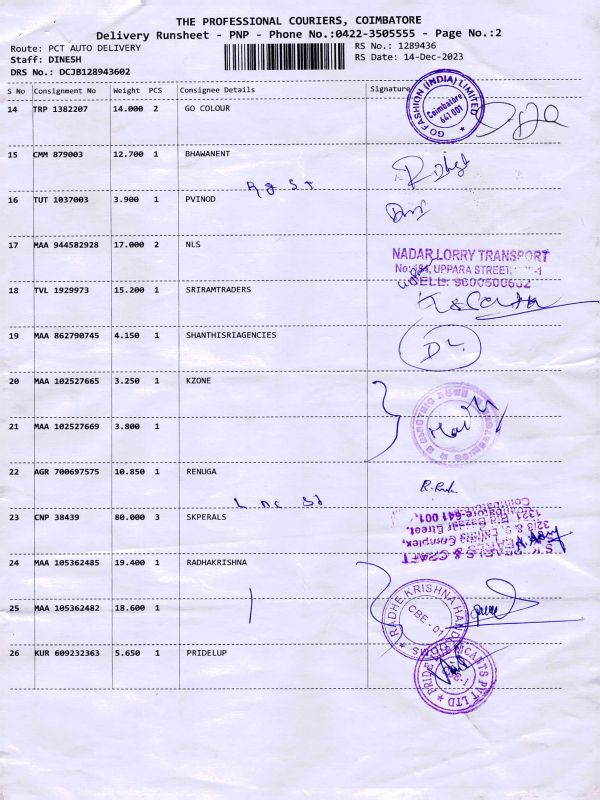 THE PROFESSIONAL COURIERS, COIMBATORE
Delivery Runsheet - PNP - Phone No.:0422-3505555 - Page No.:2
Route: PCT AUTO DELIVERY
RS No.: 1289436
Staff: DINESH
RS Date: 14-Dec-2023
DRS No.: DCJB128943602
S No Consignment No Weight PCS Consignee Details Signature
14 TRP 1382207 14.000 2 GO COLOUR
GO FASHION (INDIA) LIMITED
Coimbatore
641 001
15 CMM 879003 12.700 1 BHAWANENT
16 TUT 1037003 3.900 1 PVINOD
17 MAA 944582928 17.000 2 NLS
NADAR LORRY TRANSPORT
UPPARA STREET,
CELL: 9600500632
18 TVL 1929973 15.200 1 SRIRAMTRADERS
19 MAA 862790745 4.150 1 SHANTHISRIAGENCIES
20 MAA 102527665 3.250 1 KZONE
21 MAA 102527669 3.800 1
22 AGR 700697575 10.850 1 RENUGA
23 CNP 38439 80.000 3 SKPERALS
S.K. PEARLS & CRAFT
Complex,
1321, Big Bazaar Street,
Coimbatore-641 001.
24 MAA 105362485 19.400 1 RADHAKRISHNA
25 MAA 105362482 18.600 1
RADHE KRISHNA HAND
CBE - 01
26 KUR 609232363 5.650 1 PRIDELUP
PVT LTD